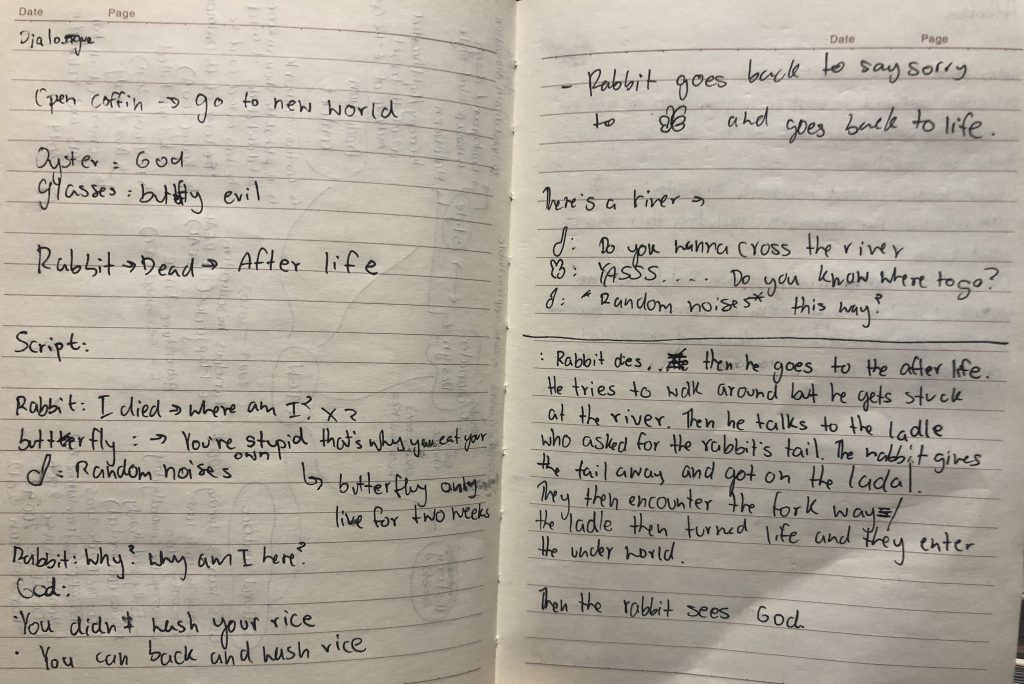 Date Page
Dialougue
Open coffin → go to new world
Oyster = God
glasses : buttfly evil
Rabbit → Dead → After life
Script:
Rabbit: I died → where am I? x 2
butterfly : → You're stupid that's why you eat your own
: Random noises
↳ butterfly only
live for two weeks
Rabbit: Why? Why am I here?
God:
· You didn't wash your rice
· You can back and wash rice
Date Page
- Rabbit goes back to say sorry
to and goes back to life.
There's a river →
: Do you wanna cross the river
: YASSS..... Do you know where to go?
: *Random noises* this way?
: Rabbit dies.. then he goes to the after life.
He tries to walk around but he gets stuck
at the river. Then he talks to the ladle
who asked for the rabbit's tail. The rabbit gives
the tail away and got on the ladal.
They then encounter the fork ways/
the ladle then turned life and they enter
the under world.
Then the rabbit sees God.